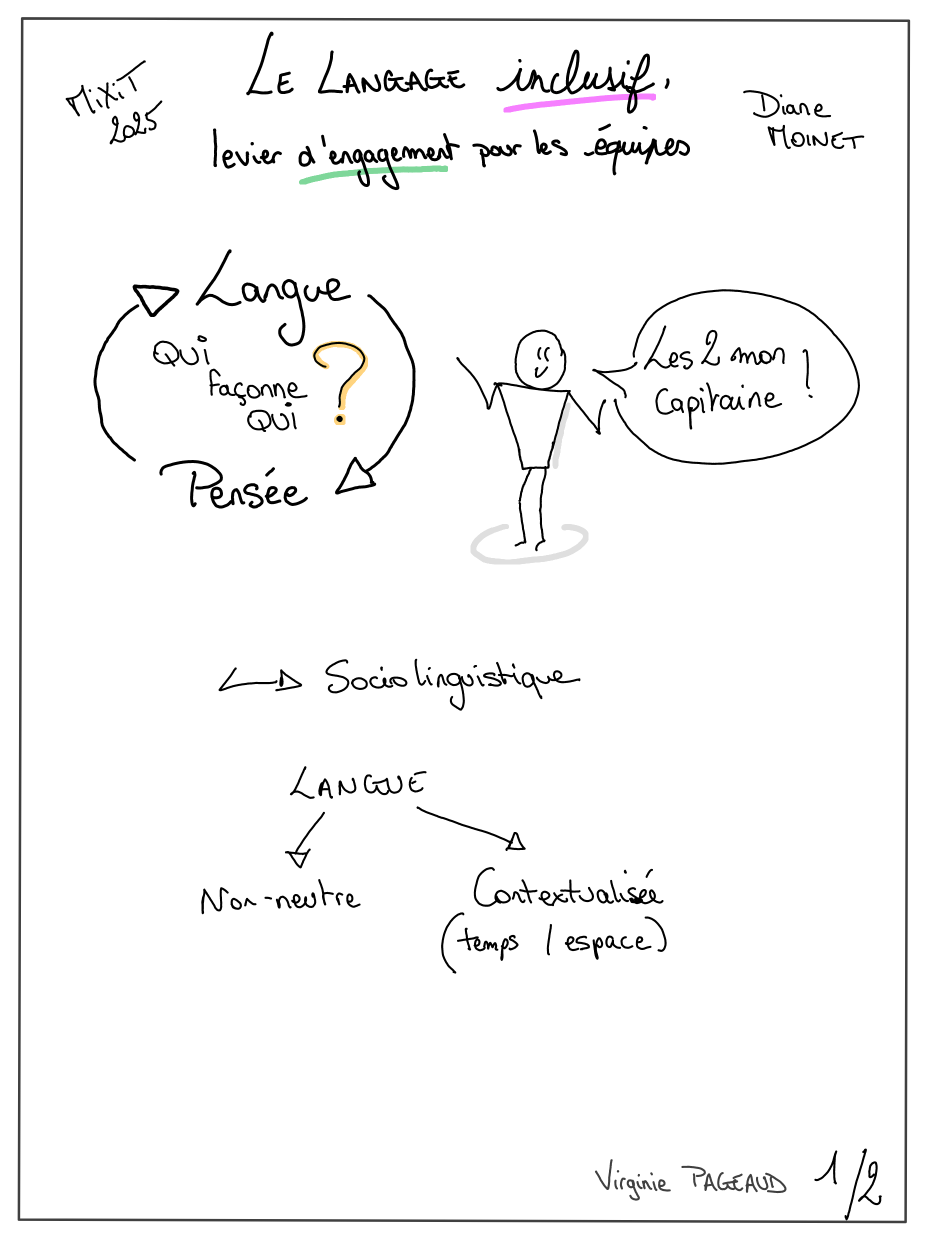 MiXiT
2025
LE LANGAGE inclusif,
levier d'engagement pour les équipes
Diane
MOINET
Langue
QUi
façonne
QUi ?
Pensée
Les 2 mon
Capitaine !
Sociolinguistique
LANGUE
Non-neutre
Contextualisée
(temps / espace)
Virginie PAGEAUD
1/2